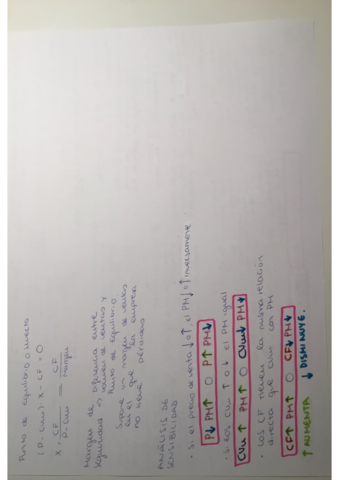 Punto de equilibrio o muerto
(P - CVu) · X - CF = 0
X = CF / P - CVu = CF / Margen
Margen de seguridad => diferencia entre
volumen de ventas y
Punto de equilibrio.
Supone un margen de ventas
en el que la empresa
no tiene pérdidas
ANÁLISIS DE
SENSIBILIDAD
• Si el precio de venta ↓ o ↑, el PM ↓ o ↑ inversamente
P↓ PM↑ O P↑ PM↓
• Si los CVu ↑ o ↓ el PM igual
CVu ↑ PM ↑ O CVu↓ PM↓
• Los CF tienen la misma relación
directa que CVu con PM
CF↑ PM↑ O CF↓ PM↓
↑ AUMENTA ↓ DISMINUYE.